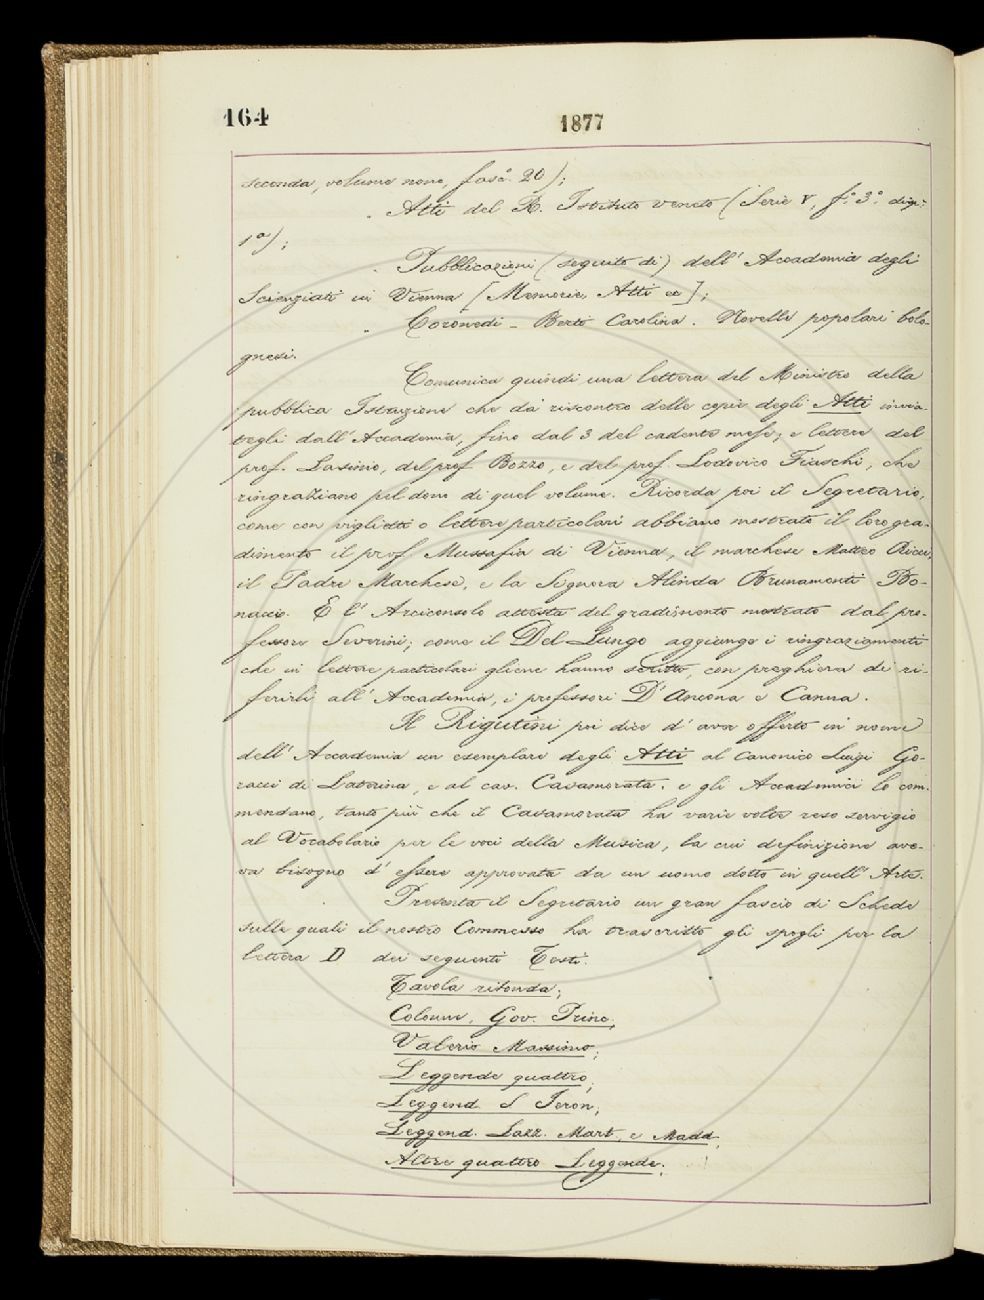 164
1877
seconda, volume nono, fasc.° 20);
Atti del R. Istituto veneto (Serie V, f.° 3.° disp.
1ª);
Pubblicazioni (seguito di) dell' Accademia degli
Scienziati in Vienna [Memorie, Atti ec];
Coronedi - Berti Carolina. Novelle popolari bolo-
gnesi.
Comunica quindi una lettera del Ministro della
pubblica Istruzione che dà riscontro delle copie degli Atti invia-
tegli dall' Accademia, fino dal 3 del cadente mese; e lettere del
prof. Lasinio, del prof Bozzo, e del prof. Lodovico Fiaschi, che
ringraziano pel dono di quel volume. Ricorda poi il Segretario,
come con viglietti o lettere particolari abbiano mostrato il loro gra-
dimento il prof Mussafia di Vienna, il marchese Matteo Ricci,
il Padre Marchese, e la Signora Alinda Brunamonti Bo-
nacci. E l' Arciconsolo attesta del gradimento mostrato dal pro-
fessore Severini; come il Del Lungo aggiunge i ringraziamenti
che in lettere particolari gliene hanno scritto, con preghiera di ri-
ferirli all' Accademia, i professori D' Ancona e Canna.
Il Rigutini poi dice d' aver offerto in nome
dell' Accademia un esemplare degli Atti al Canonico Luigi Go-
racci di Laterina, e al cav. Casamorata. e gli Accademici lo com-
mendano, tanto più che il Casamorata ha varie volte reso servigio
al Vocabolario per le voci della Musica, la cui definizione ave-
va bisogno d' essere approvata da un uomo dotto in quell' Arte.
Presenta il Segretario un gran fascio di Schede
sulle quali il nostro Commesso ha trascritto gli spogli per la
lettera D dei seguenti Testi.
Tavola ritonda;
Colonn. Gov. Princ.;
Valerio Massimo;
Leggende quattro;
Leggend. S Jeron;
Leggend. Lazz. Mart. e Madd.;
Altre quattro Leggende;